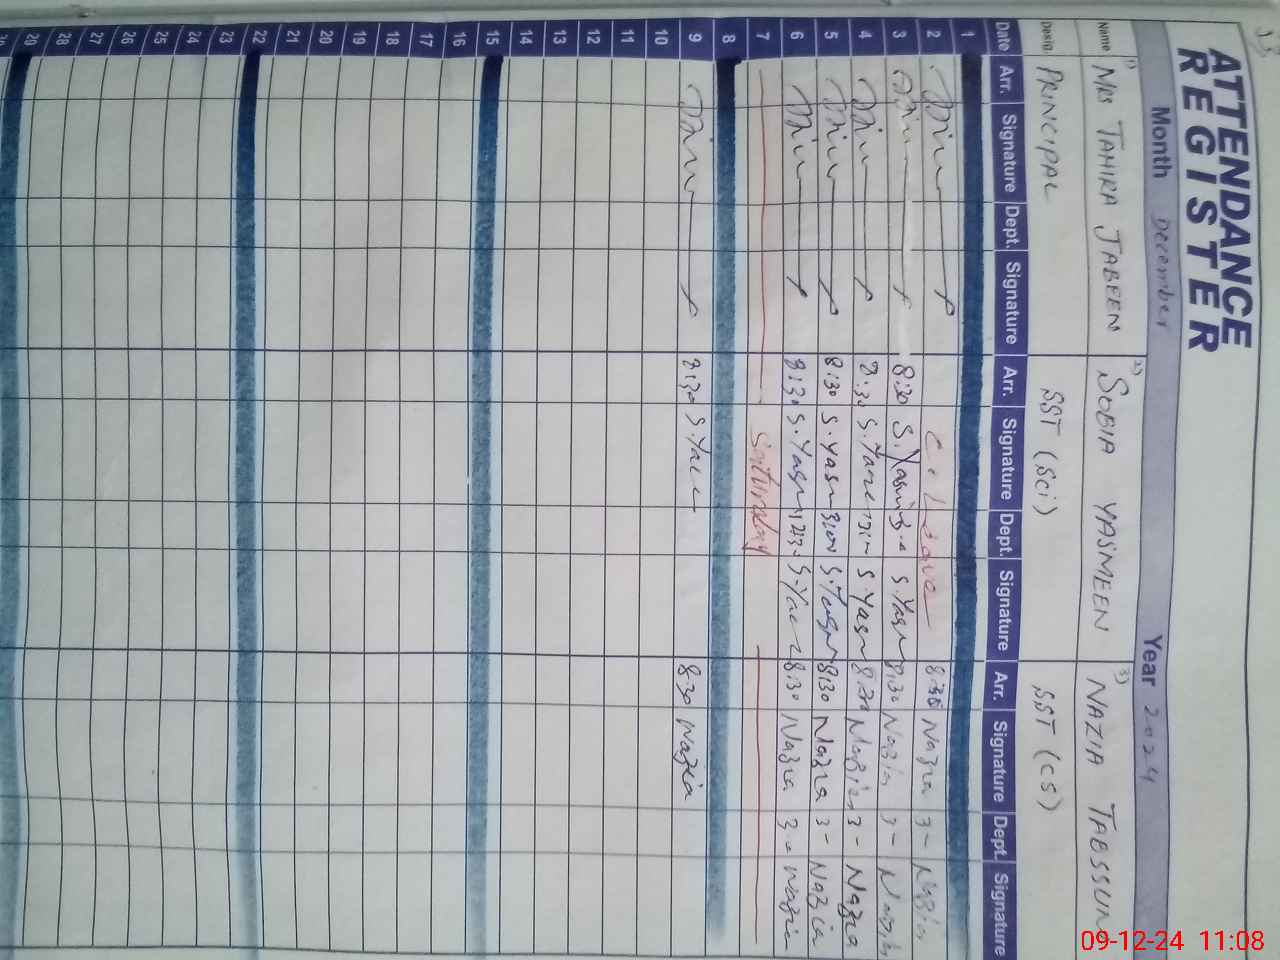 ATTENDANCE
REGISTER
Month December Year 2024
Name 1) MRS TAHIRA JABEEN 2) SOBIA YASMEEN 3) NAZIA TABSSUM
Desig. PRINCIPAL SST (Sci) SST (CS)
Date Arr. Signature Dept. Signature Arr. Signature Dept. Signature Arr. Signature Dept. Signature
1
2 C. Leave 8:30 Nazia 3- Nazia
3 8:30 S.Yasmi S.Yasm 8:30 Nazia 3- Nazia
4 8:30 S.Yasm 8:30 Nazia 3- Nazia
5 8:30 S.Yasm S.Yasm 8:30 Nazia 3- Nazia
6 8:30 S.Yasm 8:30 Nazia 3- Nazia
7 Saturday
8
9 8:30 S.Yas 8:30 Nazia
10
11
12
13
14
15
16
17
18
19
20
21
22
23
24
25
26
27
28
29
09-12-24 11:08